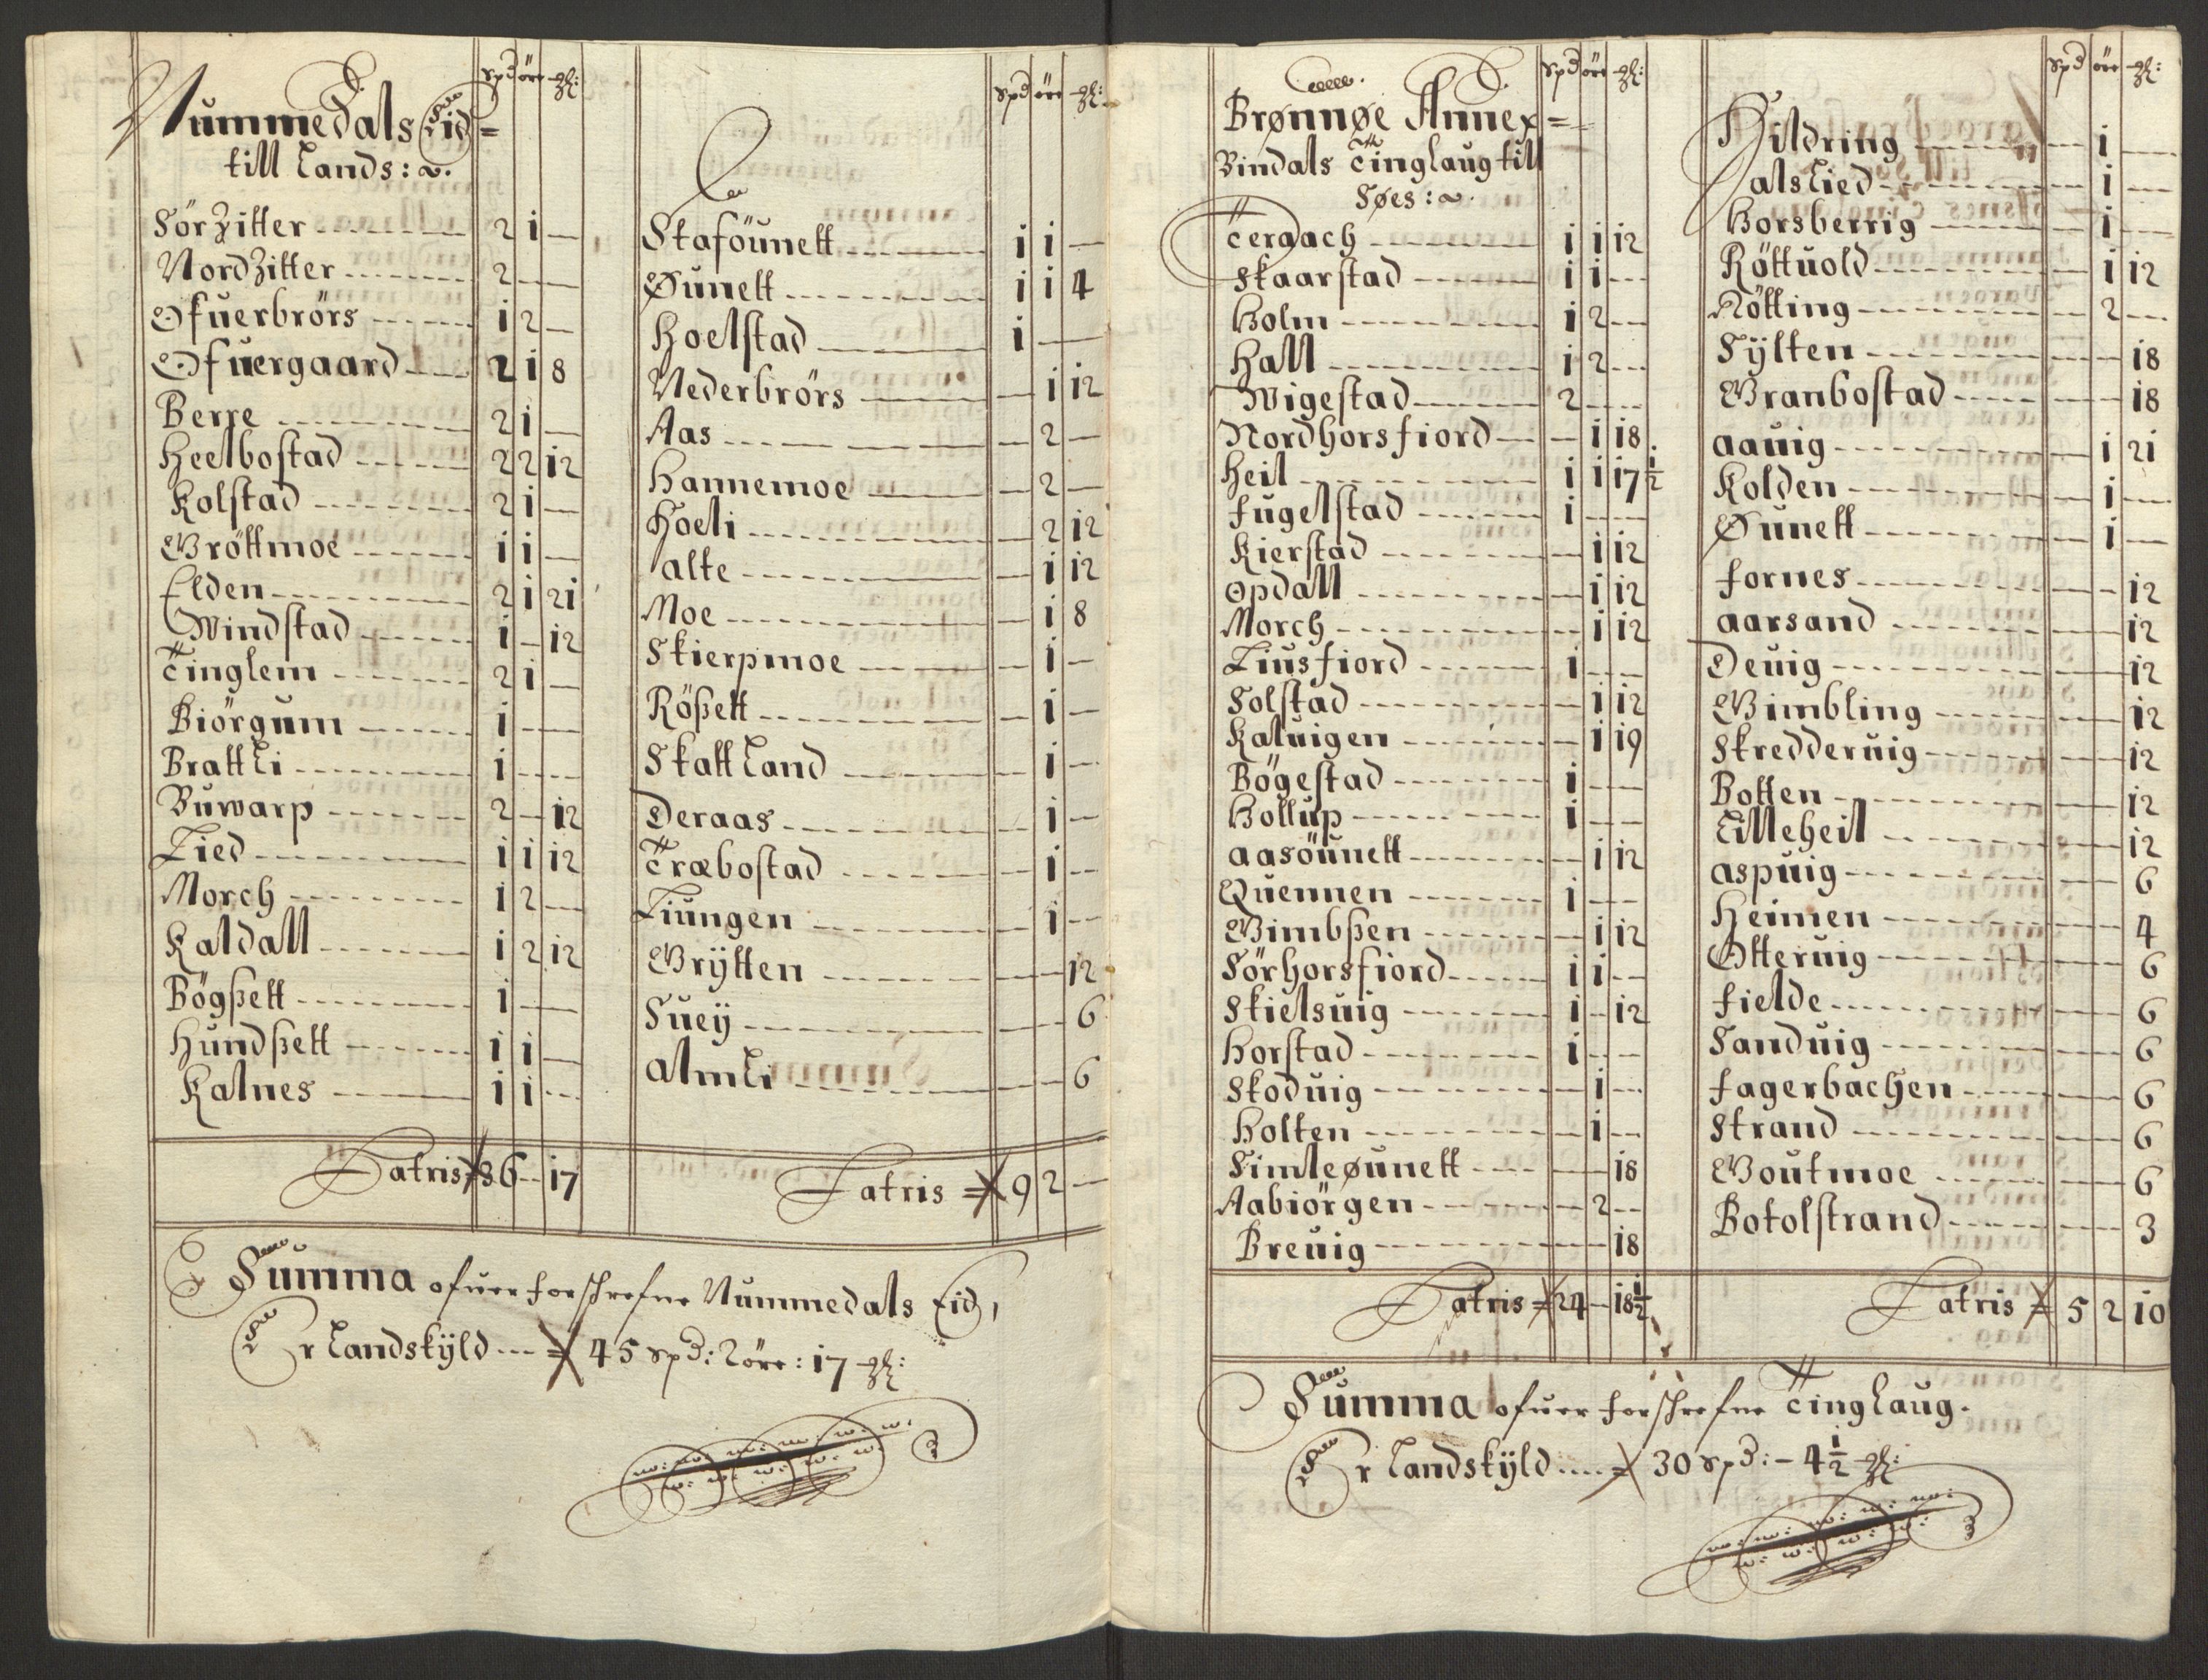 Nummedals Eid =
till Lands: Spd öre gl:
Sör Zitter 2 1 —
Nord Zitter 2 — —
Ofuerbrörs 1 2 —
Ofuergaard 2 1 8
Berre 2 1 —
Heelbostad 2 2 12
Kolstad 2 1 —
Gröttmoe 1 1 —
Elden 2 1 21
Windstad 1 — 12
Tinglem 2 1 —
Biörgum 1 — —
Brattli 1 — —
Buwarp 2 — 12
Lied 1 1 12
Morch 1 2 —
Kaldall 1 2 12
Bögßett 1 — —
Hundßett 1 1 —
Kalnes 1 1 —
Latris 36 — 17
Spd öre gl:
Skaföunett 1 1 —
Øunett 1 1 4
Hoelstad 1 — —
Nederbrörs — 1 12
Aas — 2 —
Hannemoe — 2 —
Hoeli — 2 12
alte — 1 12
Moe — 1 8
Skierpmoe — 1 —
Rößett — 1 —
Skattland — 1 —
Deraas — 1 —
Træbostad — 1 —
Liungen — 1 —
Grÿtten — — 12
Sueÿ — — 6
almli — — 6
Latris 9 2 —
Summa ofuer forschrefne Nummedals Eid,
Er Landskÿld 45 spd: 2 öre: 17 gl:
Brønnøe Annex = Spd öre gl:
Bindals Tinglaug till
Søes:
Tergach 1 1 12
Skaarstad 1 1 —
Holm 1 2 —
Hall 1 2 —
Wigestad 2 — —
Nordhorsfiord — 1 18
Heil 1 1 17 1/2
Fugelstad 1 — —
Kierstad — 1 12
Opdall — 1 12
Morch — 1 12
Liusfiord 1 — —
Solstad — 1 12
Kaluigen — 1 19
Bögestad 1 — —
Hollup 1 — —
aasöunett — 1 12
Quennen 1 — —
Gimbßen — 1 12
Sörhorsfiord 1 1 —
Skielsuig 1 — 12
Horstad 1 — —
Skoduig — 1 —
Holten — 1 —
Simleøunett — — 18
Aabiörgen — 2 —
Breuig — — 18
Latris 24 — 18 1/2
Spd öre gl:
Hildring — 1 —
alsLied — 1 —
Horsberrig — 1 —
Röttuold — 1 12
Nötting — 2 —
Sÿlten — — 18
Granbostad — — 18
aauig — 1 21
Kolden — 1 —
Øunett — 1 —
fornes — — 12
aarsand — — 12
Deuig — — 12
Gimbling — — 12
Skredderuig — — 12
Botten — — 12
Lilleheil — — 12
aspuig — — 6
Heimen — — 4
Otteruig — — 6
fielde — — 6
Sanduig — — 6
fagerbachen — — 6
Strand — — 6
Goutmoe — — 6
Botolstrand — — 3
Latris 5 2 10
Summa ofuer forschrefne Tinglaug.
Er Landskÿld 30 spd: — 4 1/2 gl: